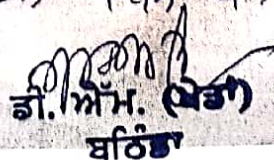 ਡੀ. ਐੱਮ. (ਖੇਡਾਂ)
ਬਠਿੰਡਾ